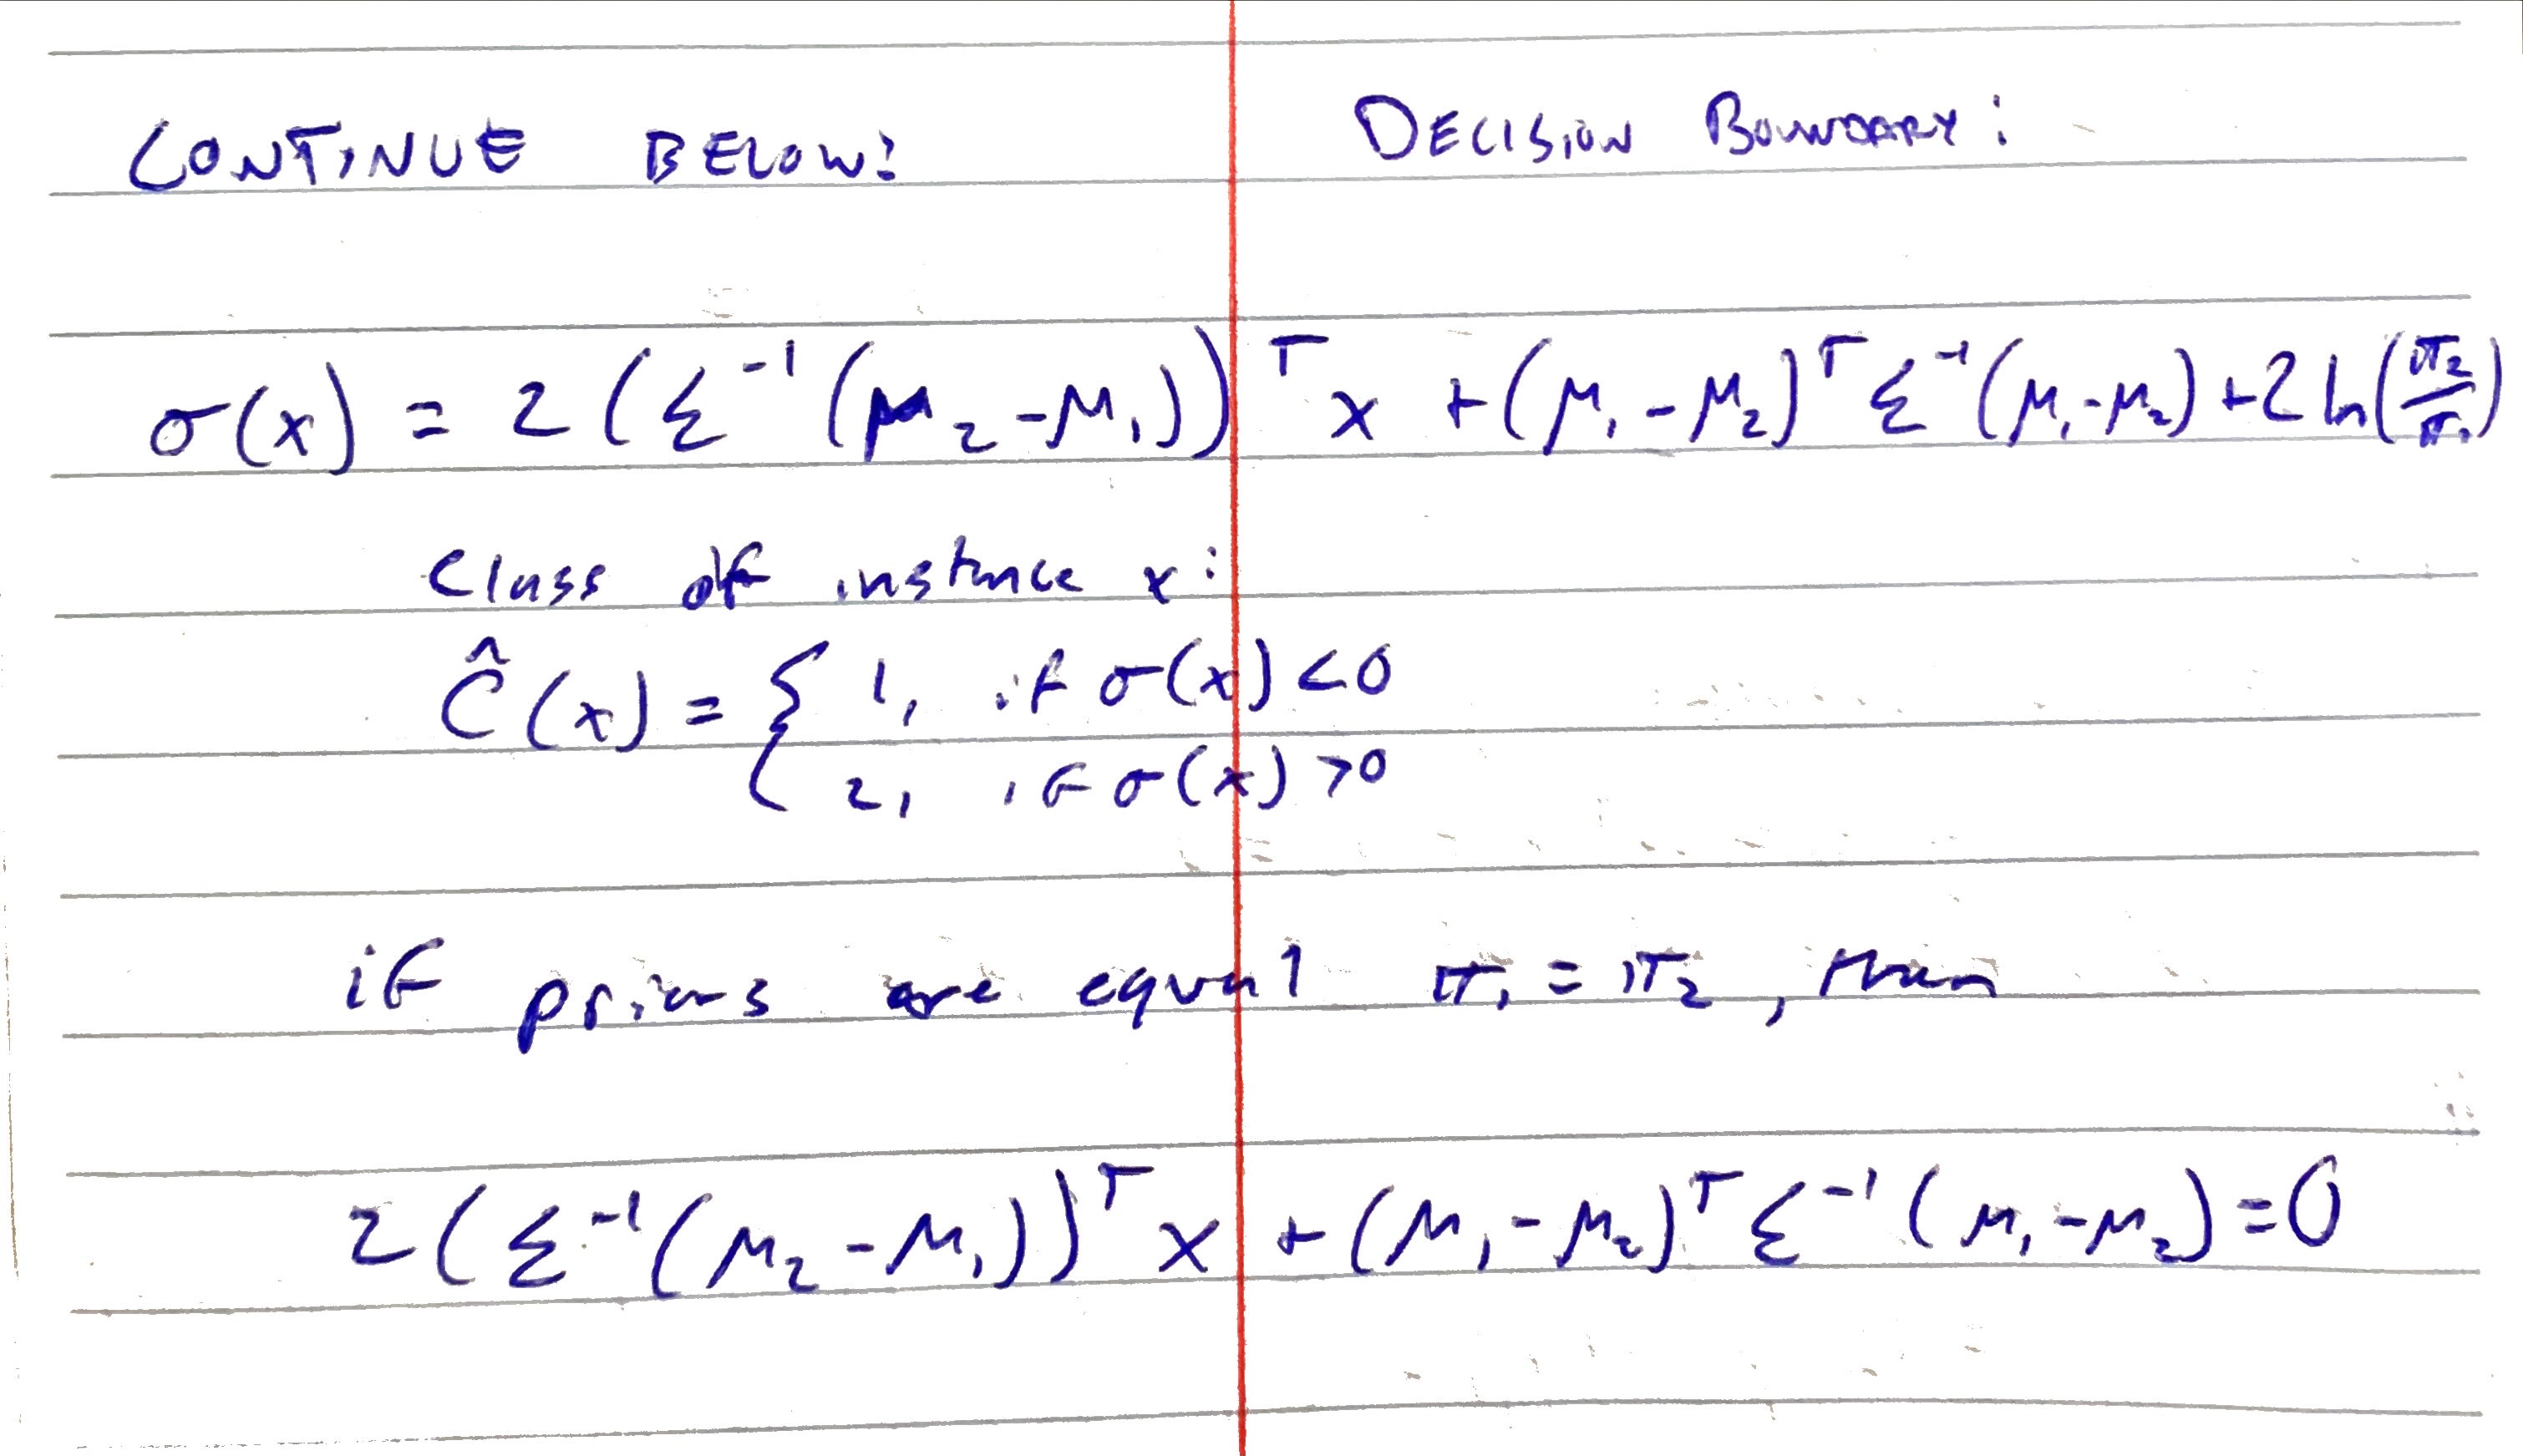 CONTINUE BELOW: DECISION BOUNDARY:
σ(x) = 2(Σ⁻¹(μ₂-μ₁))ᵀx + (μ₁-μ₂)ᵀΣ⁻¹(μ₁-μ₂) + 2 ln(π₂/π₁)
Class of instance x:
Ĉ(x) = { 1, if σ(x) < 0
2, if σ(x) > 0
if priors are equal π₁ = π₂, then
2(Σ⁻¹(μ₂-μ₁))ᵀx + (μ₁-μ₂)ᵀΣ⁻¹(μ₁-μ₂) = 0